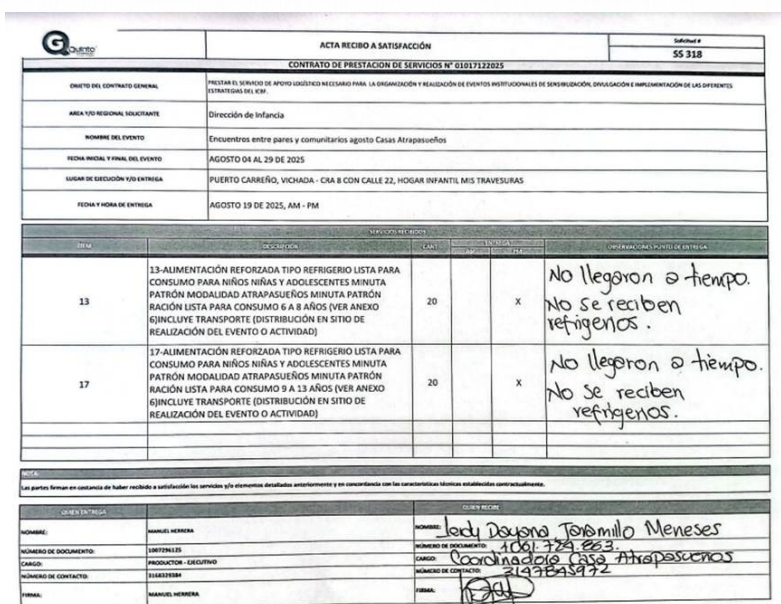 Quinto
ACTA RECIBO A SATISFACCIÓN
Solicitud #
SS 318
CONTRATO DE PRESTACION DE SERVICIOS N° 01017122025
OBJETO DEL CONTRATO GENERAL
PRESTAR EL SERVICIO DE APOYO LOGÍSTICO NECESARIO PARA LA ORGANIZACIÓN Y REALIZACIÓN DE EVENTOS INSTITUCIONALES DE SENSIBILIZACIÓN, DIVULGACIÓN E IMPLEMENTACIÓN DE LAS DIFERENTES
ESTRATEGIAS DEL ICBF.
AREA Y/O REGIONAL SOLICITANTE
Dirección de Infancia
NOMBRE DEL EVENTO
Encuentros entre pares y comunitarios agosto Casas Atrapasueños
FECHA INICIAL Y FINAL DEL EVENTO
AGOSTO 04 AL 29 DE 2025
LUGAR DE EJECUCIÓN Y/O ENTREGA
PUERTO CARREÑO, VICHADA - CRA 8 CON CALLE 22, HOGAR INFANTIL MIS TRAVESURAS
FECHA Y HORA DE ENTREGA
AGOSTO 19 DE 2025, AM - PM
SERVICIOS RECIBIDOS
ITEM DESCRIPCIÓN CANT ENTREGA OBSERVACIONES PUNTO DE ENTREGA
13
13-ALIMENTACIÓN REFORZADA TIPO REFRIGERIO LISTA PARA
CONSUMO PARA NIÑOS NIÑAS Y ADOLESCENTES MINUTA
PATRÓN MODALIDAD ATRAPASUEÑOS MINUTA PATRÓN
RACIÓN LISTA PARA CONSUMO 6 A 8 AÑOS (VER ANEXO
6)INCLUYE TRANSPORTE (DISTRIBUCIÓN EN SITIO DE
REALIZACIÓN DEL EVENTO O ACTIVIDAD)
20
X
No llegaron a tiempo.
No se reciben
refrigerios.
17
17-ALIMENTACIÓN REFORZADA TIPO REFRIGERIO LISTA PARA
CONSUMO PARA NIÑOS NIÑAS Y ADOLESCENTES MINUTA
PATRÓN MODALIDAD ATRAPASUEÑOS MINUTA PATRÓN
RACIÓN LISTA PARA CONSUMO 9 A 13 AÑOS (VER ANEXO
6)INCLUYE TRANSPORTE (DISTRIBUCIÓN EN SITIO DE
REALIZACIÓN DEL EVENTO O ACTIVIDAD)
20
X
No llegaron a tiempo.
No se reciben
refrigerios.
NOTA:
Las partes firman en costancia de haber recibido a satisfacción los servicios y/o elementos detallados anteriormente y en concordancia con las características técnicas establecidas contractualmente.
QUIEN ENTREGA
QUIEN RECIBE
NOMBRE: MANUEL HERRERA
NOMBRE: Leidy Dayana Jaramillo Meneses
NÚMERO DE DOCUMENTO: 1007296125
NÚMERO DE DOCUMENTO: 1061.784.863.
CARGO: PRODUCTOR - EJECUTIVO
CARGO: Coordinadora Casa Atrapasueños
NÚMERO DE CONTACTO: 3168329384
NÚMERO DE CONTACTO: 3147845972
FIRMA: MANUEL HERRERA
FIRMA: